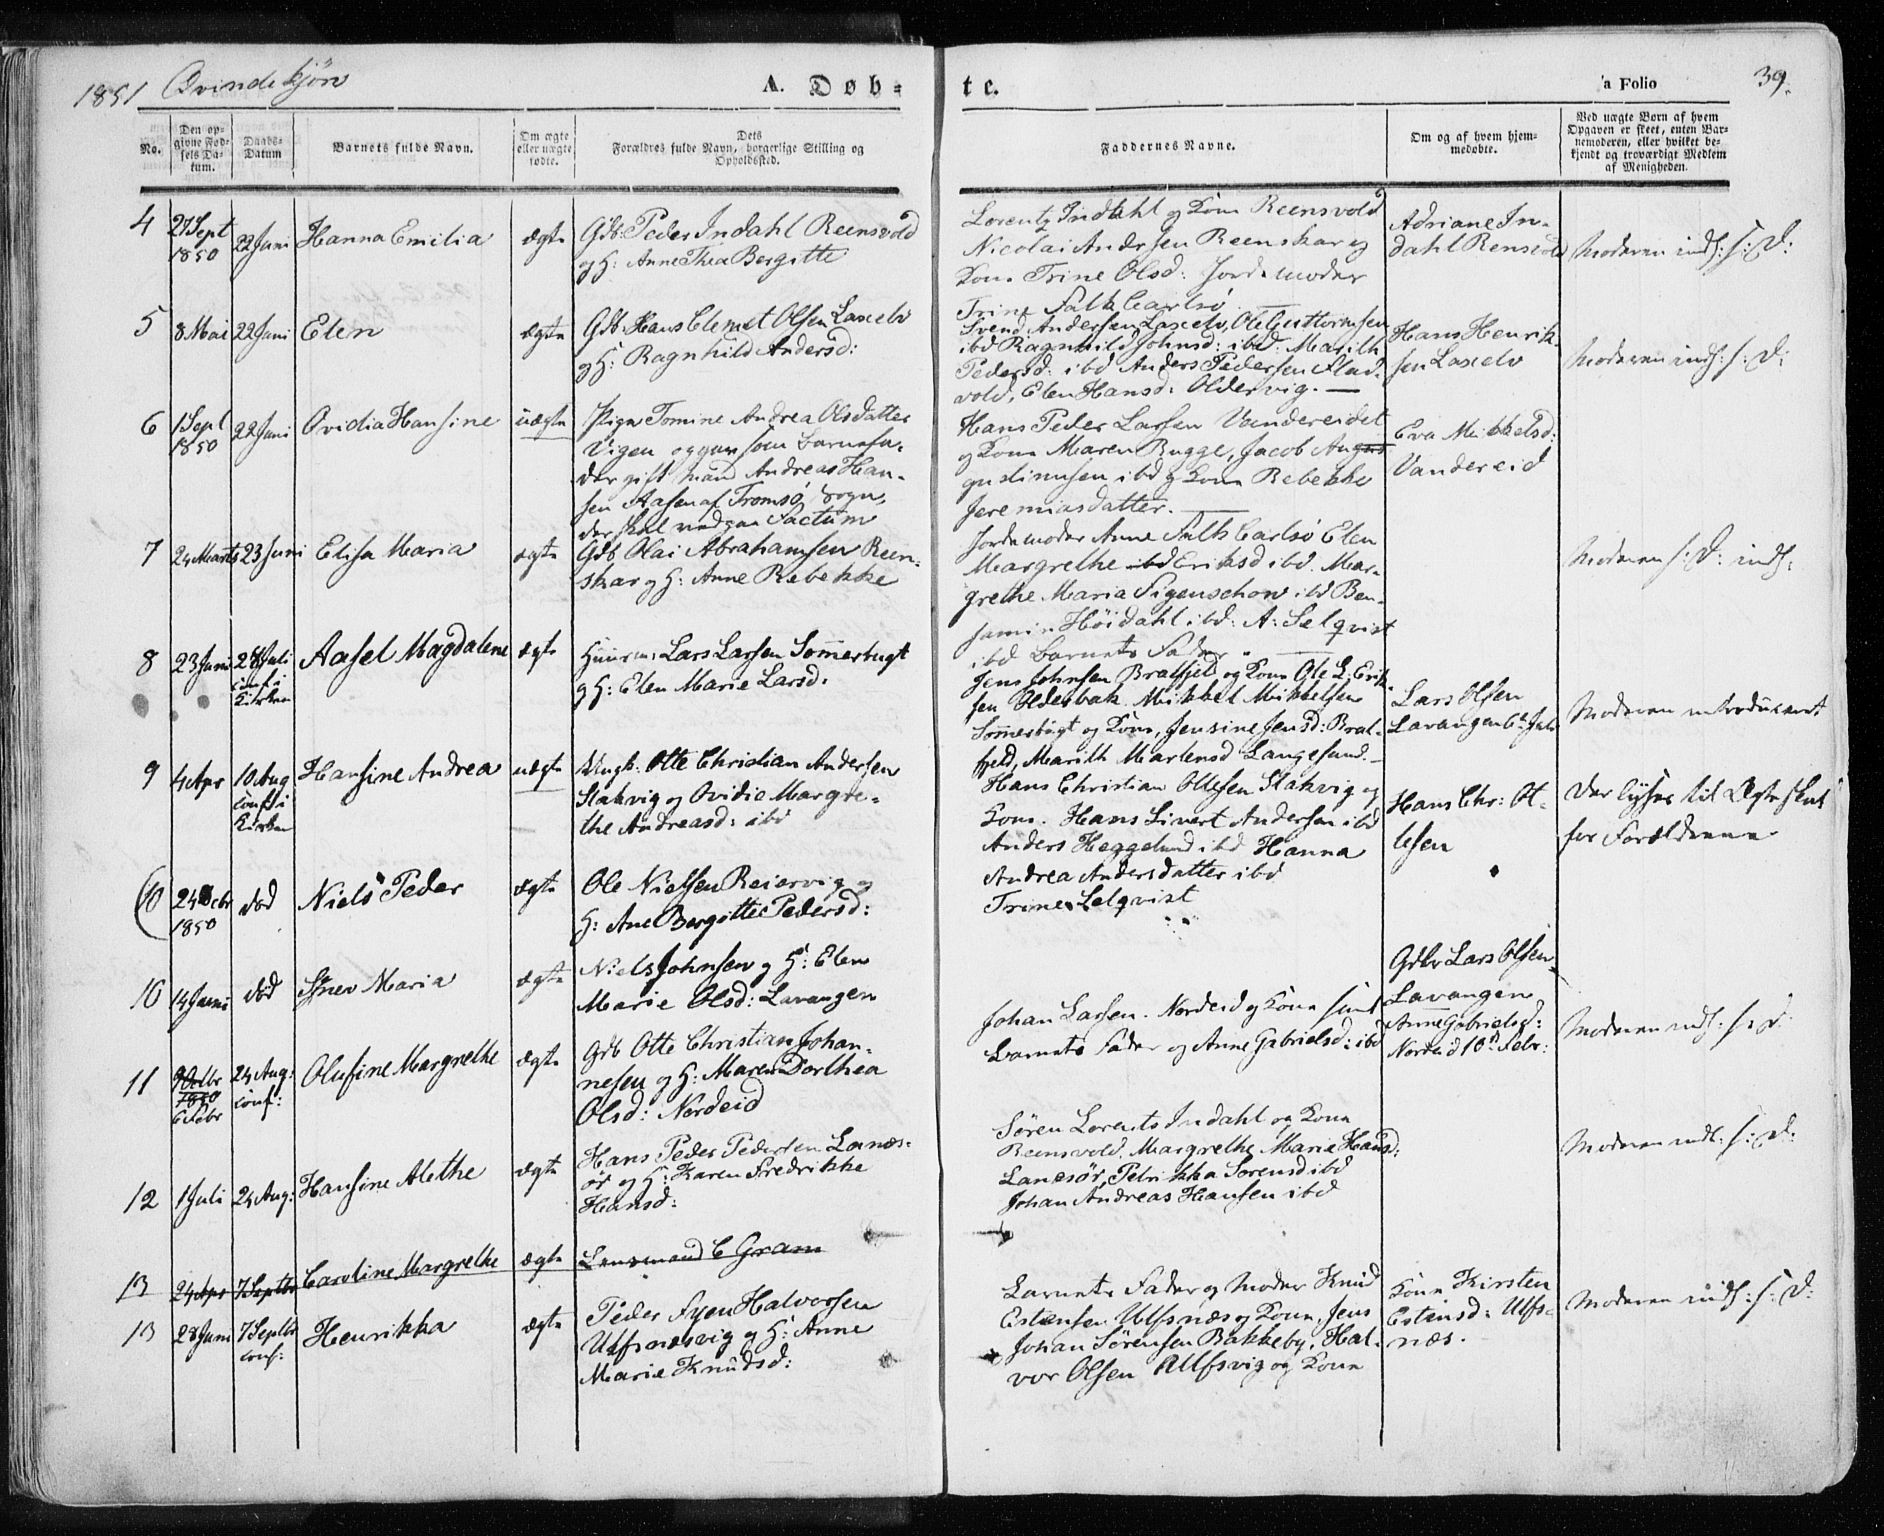 1851 Qvindekjøn
A. Døb-
te.
a Folio
39.
No.
Den op-
givne Fød-
sels Da-
tum.
Daabs-
Datum
Barnets fulde Navn.
Om ægte
eller uægte
fødte.
Dets
Forældres fulde Navn, borgerlige Stilling og
Opholdssted.
Faddernes Navne.
Om og af hvem hjem-
medøbte.
Ved uægte Børn af hvem
Opgaven er skeet, enten Bar-
nemoderen, eller hvilket be-
kjendt og troværdigt Medlem
af Menigheden.
4
27 Sept
1850
22 Juni
Hanna Emilia
ægte
Gdb: Peder Indahl Reensvold
og H: Anne Thea Bergitte
Lorentz Indahl og Kone Reensvold
Nicolai Andersen Reenskar og
Kone Trine Olsd: Jordemoder
Trine Falk Carlsø
Adriane In-
dahl Rensvold
Moderen inds: s: D:
5
8 Mai
22 Juni
Elen
ægte
Gdb: Hans Clemet Olsen Laxelv
og H: Ragnhild Andersd:
Svend Andersen Laxelv, Ole Guttormsen
ibd Ragnhild Johnsd: ibd: Marith
Pedersd: ibd Anders Pedersen Flad-
vold, Elen Hansd: Oldervig.
Hans Henrik-
sen Laxelv
Moderen inds: s: D:
6
1 Sept
1850
22 Juni
Ovidia Hansine
uægte
Pige Tomine Andrea Olsdatter
Vigen opgiven som Barnefa-
der gift Mand Andreas Han-
sen Aasen af Tromsø Sogn,
der skal vedgaa Factum
Hans Peder Larsen Vandereidet
og Kone Maren Bugge, Jacob Au
gustinusen ibd og Kone Rebekke
Jeremiasdatter.
Eva Mikkelsd:
Vandereid
7
24 Marts
23 Juni
Elisa Maria
ægte
Gdb Olai Abrahamsen Reen-
skar og H: Anne Rebekke
Jordemoder Anne Falk Carlsø Elen
Margrethe ibd Eriksd ibd. Mar-
grethe Maria Figenschow ibd Ben-
jamin Høidahl ibd: A: Selqvist
ibd Barnets Fader.
Moderen s: D: inds:
8
23 Juni
28 Juli
conf i
Kirken
Aasel Magdalene
ægte
Huusm: Lars Larsen Sommerbugt
og H: Elen Marie Larsd:
Jens Johnsen Bratfjeld og Kone Ole L. Erik-
sen Olderbak Mikkel Mikkelsen
Sommerbugt og Kone, Jensine Jensd: Brat-
fjeld, Marith Martensd Langesund.
Lars Olsen
Lavangen 6te Juli
Moderen introduceret
9
4 Apr
10 Aug
conf i
Kirken
Hansine Andrea
uægte
Ungk: Otte Christian Andersen
Slakvig og Ovidie Margre-
the Andreasd: ibd
Hans Christian Olsen Slakvig og
Kone. Hans Sivert Andersen ibd
Anders Heggelund ibd Hanna
Andrea Andersdatter ibd
Trine Selqvist
Hans Chr: Ol-
lesen
Der lyses til Ægteskab
for Forældrene
(10
24 Octbr
1850
død
Niels Peder
ægte
Ole Nielsen Reiervig og
H: Ane Bergitte Pedersd:
10
14 Juni
død
Maria
ægte
Niels Johnsen og H: Elen
Marie Olsd: Lavangen
Gdbr Lars Olsen
Lavangen
11
9 Octbr
1850
6 Febr
24 Aug:
conf:
Olufine Margrethe
ægte
Gdb Otte Christian Johan-
nesen og H: Maren Dorthea
Olsd: Nordeid
Johan Larsen. Nordeid og Kone samt
Barnets Fader og Anne Gabrielsd: ibd
Anne Gabrielsd:
Nordeid 10de Febr:
Moderen inds: s: D:
12
1 Juli
24 Aug:
Hansine Alethe
ægte
Hans Peder Pedersen Lanæs-
ør og H: Karen Fredrikke
Hansd:
Søren Lorents Indahl og Kone
Reensvold, Margrethe Marie Hansd:
Lanesør, Petrikka Sørensd ibd
Johan Andreas Hansen ibd
Moderen inds: s: D:
13
24 Apr
7 Septbr
Caroline Margrethe
ægte
Lensmand C Gram
13
28 Juni
7 Septbr
conf:
Henrikka
ægte
Peder Fyen Halvorsen
Ulfsnæsvig og H: Anne
Marie Knudsd:
Barnets Fader og Moder Knud
Estensen Ulfsnæs og Kone, Jens
Johan Sørensen Bakkeby, Hal-
vor Olsen Ulfsvig og Kone
Kone Kirsten
Estensd: Ulfs-
næs.
Moderen inds: s: D: